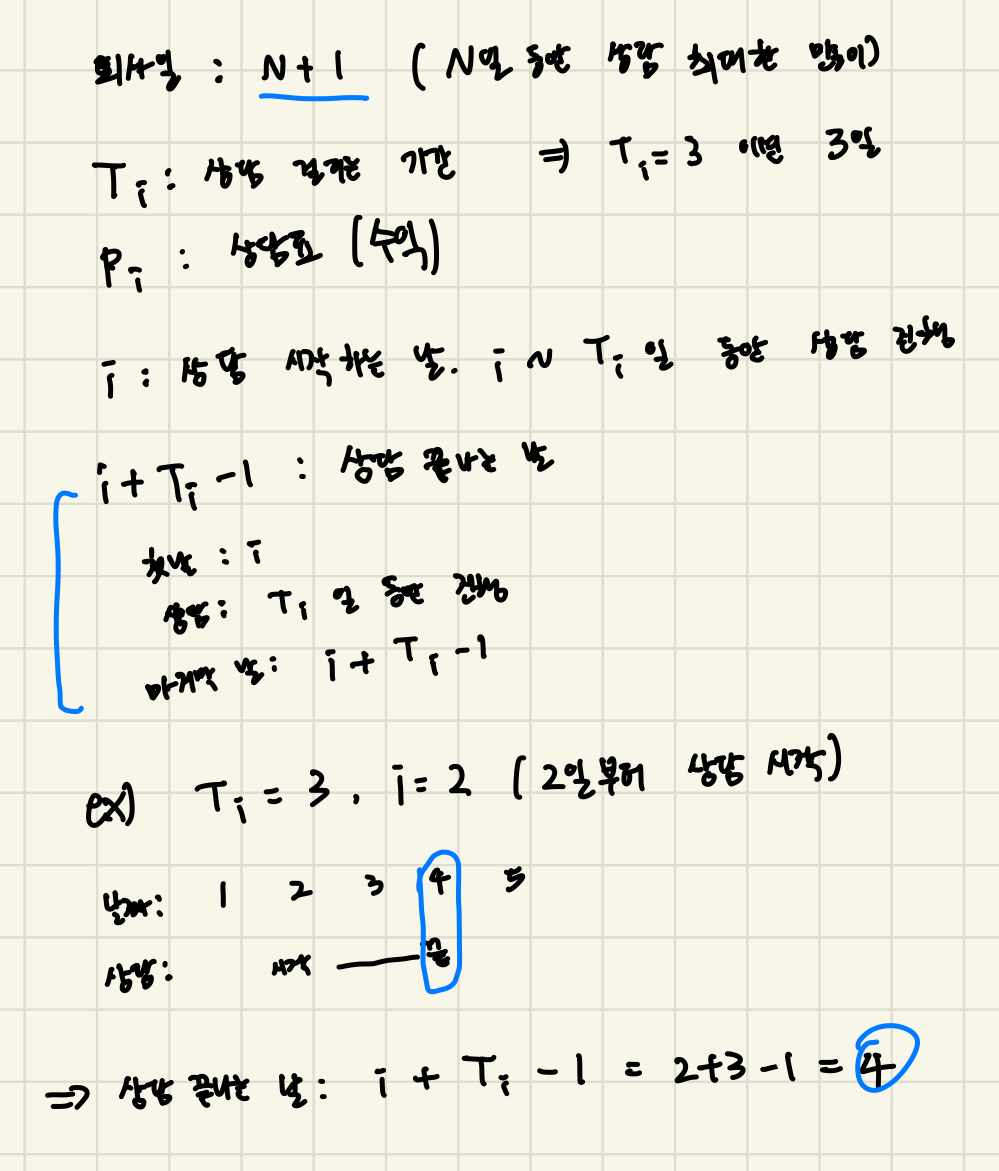 회사일 : N + 1 ( N일 동안 상담 최대한 많이)
Ti : 상담 걸리는 기간 ⇒ Ti = 3 이면 3일
Pi : 상담료 (수익)
i : 상담 시작하는 날. i ~ Ti 일 동안 상담 진행
i + Ti - 1 : 상담 끝나는 날
첫날 : i
상담 : Ti 일 동안 진행
마지막 날 : i + Ti - 1
ex) Ti = 3, i = 2 (2일부터 상담 시작)
날짜 : 1 2 3 4 5
상담 : 시작 — 끝
⇒ 상담 끝나는 날 : i + Ti - 1 = 2+3-1 = 4